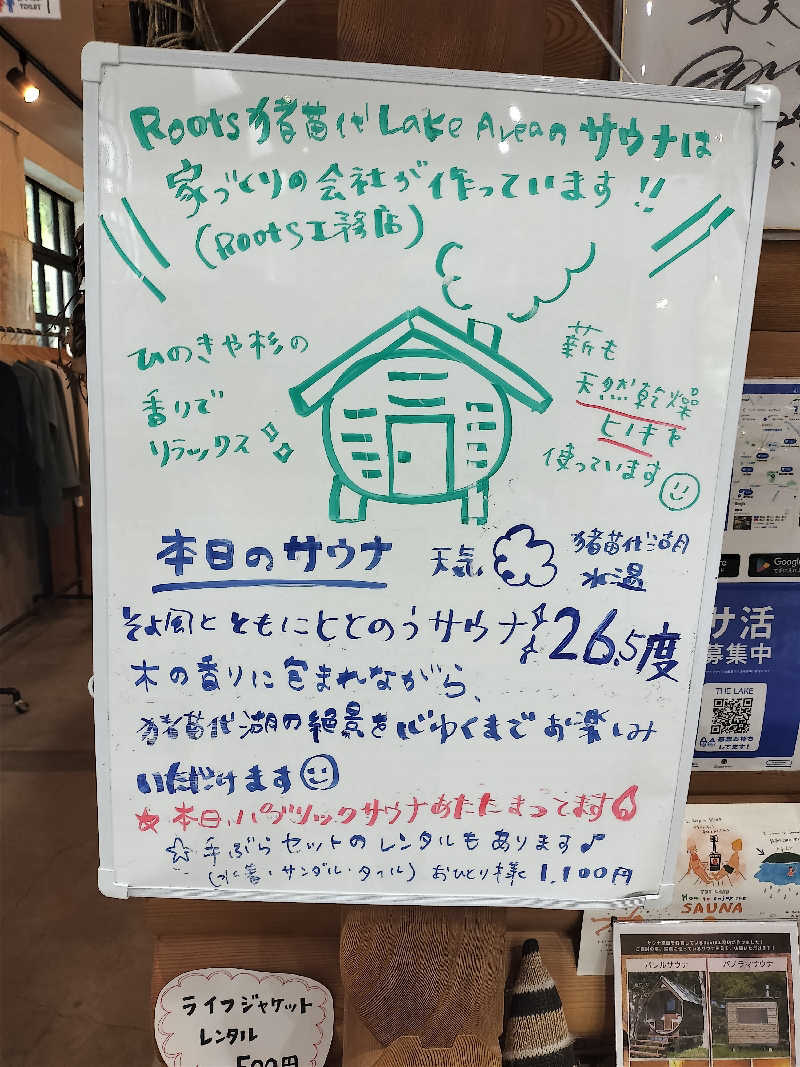 TOILET
Roots猪苗代Lake Areaのサウナは
家づくりの会社が作っています!!
(Roots工務店)
ひのきや杉の
香りで
リラックス
薪も
天然乾燥
ヒノキを
使っています
本日のサウナ
天気
猪苗代湖
水温
26.5度
そよ風とともにととのうサウナ
木の香りに包まれながら、
猪苗代湖の絶景を心ゆくまでお楽しみ
いただけます
★本日、パブリックサウナあたたまってます
☆手ぶらセットのレンタルもあります♪
(水着・サンダル・タオル) おひとり様 1,100円
Google
サ活
募集中
THE LAKE
SAUNA
バレルサウナ
パノラマサウナ
ライフジャケット
レンタル
500円